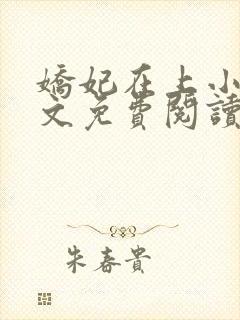 嬌妃在上小
文免費閱讀
朱春貴